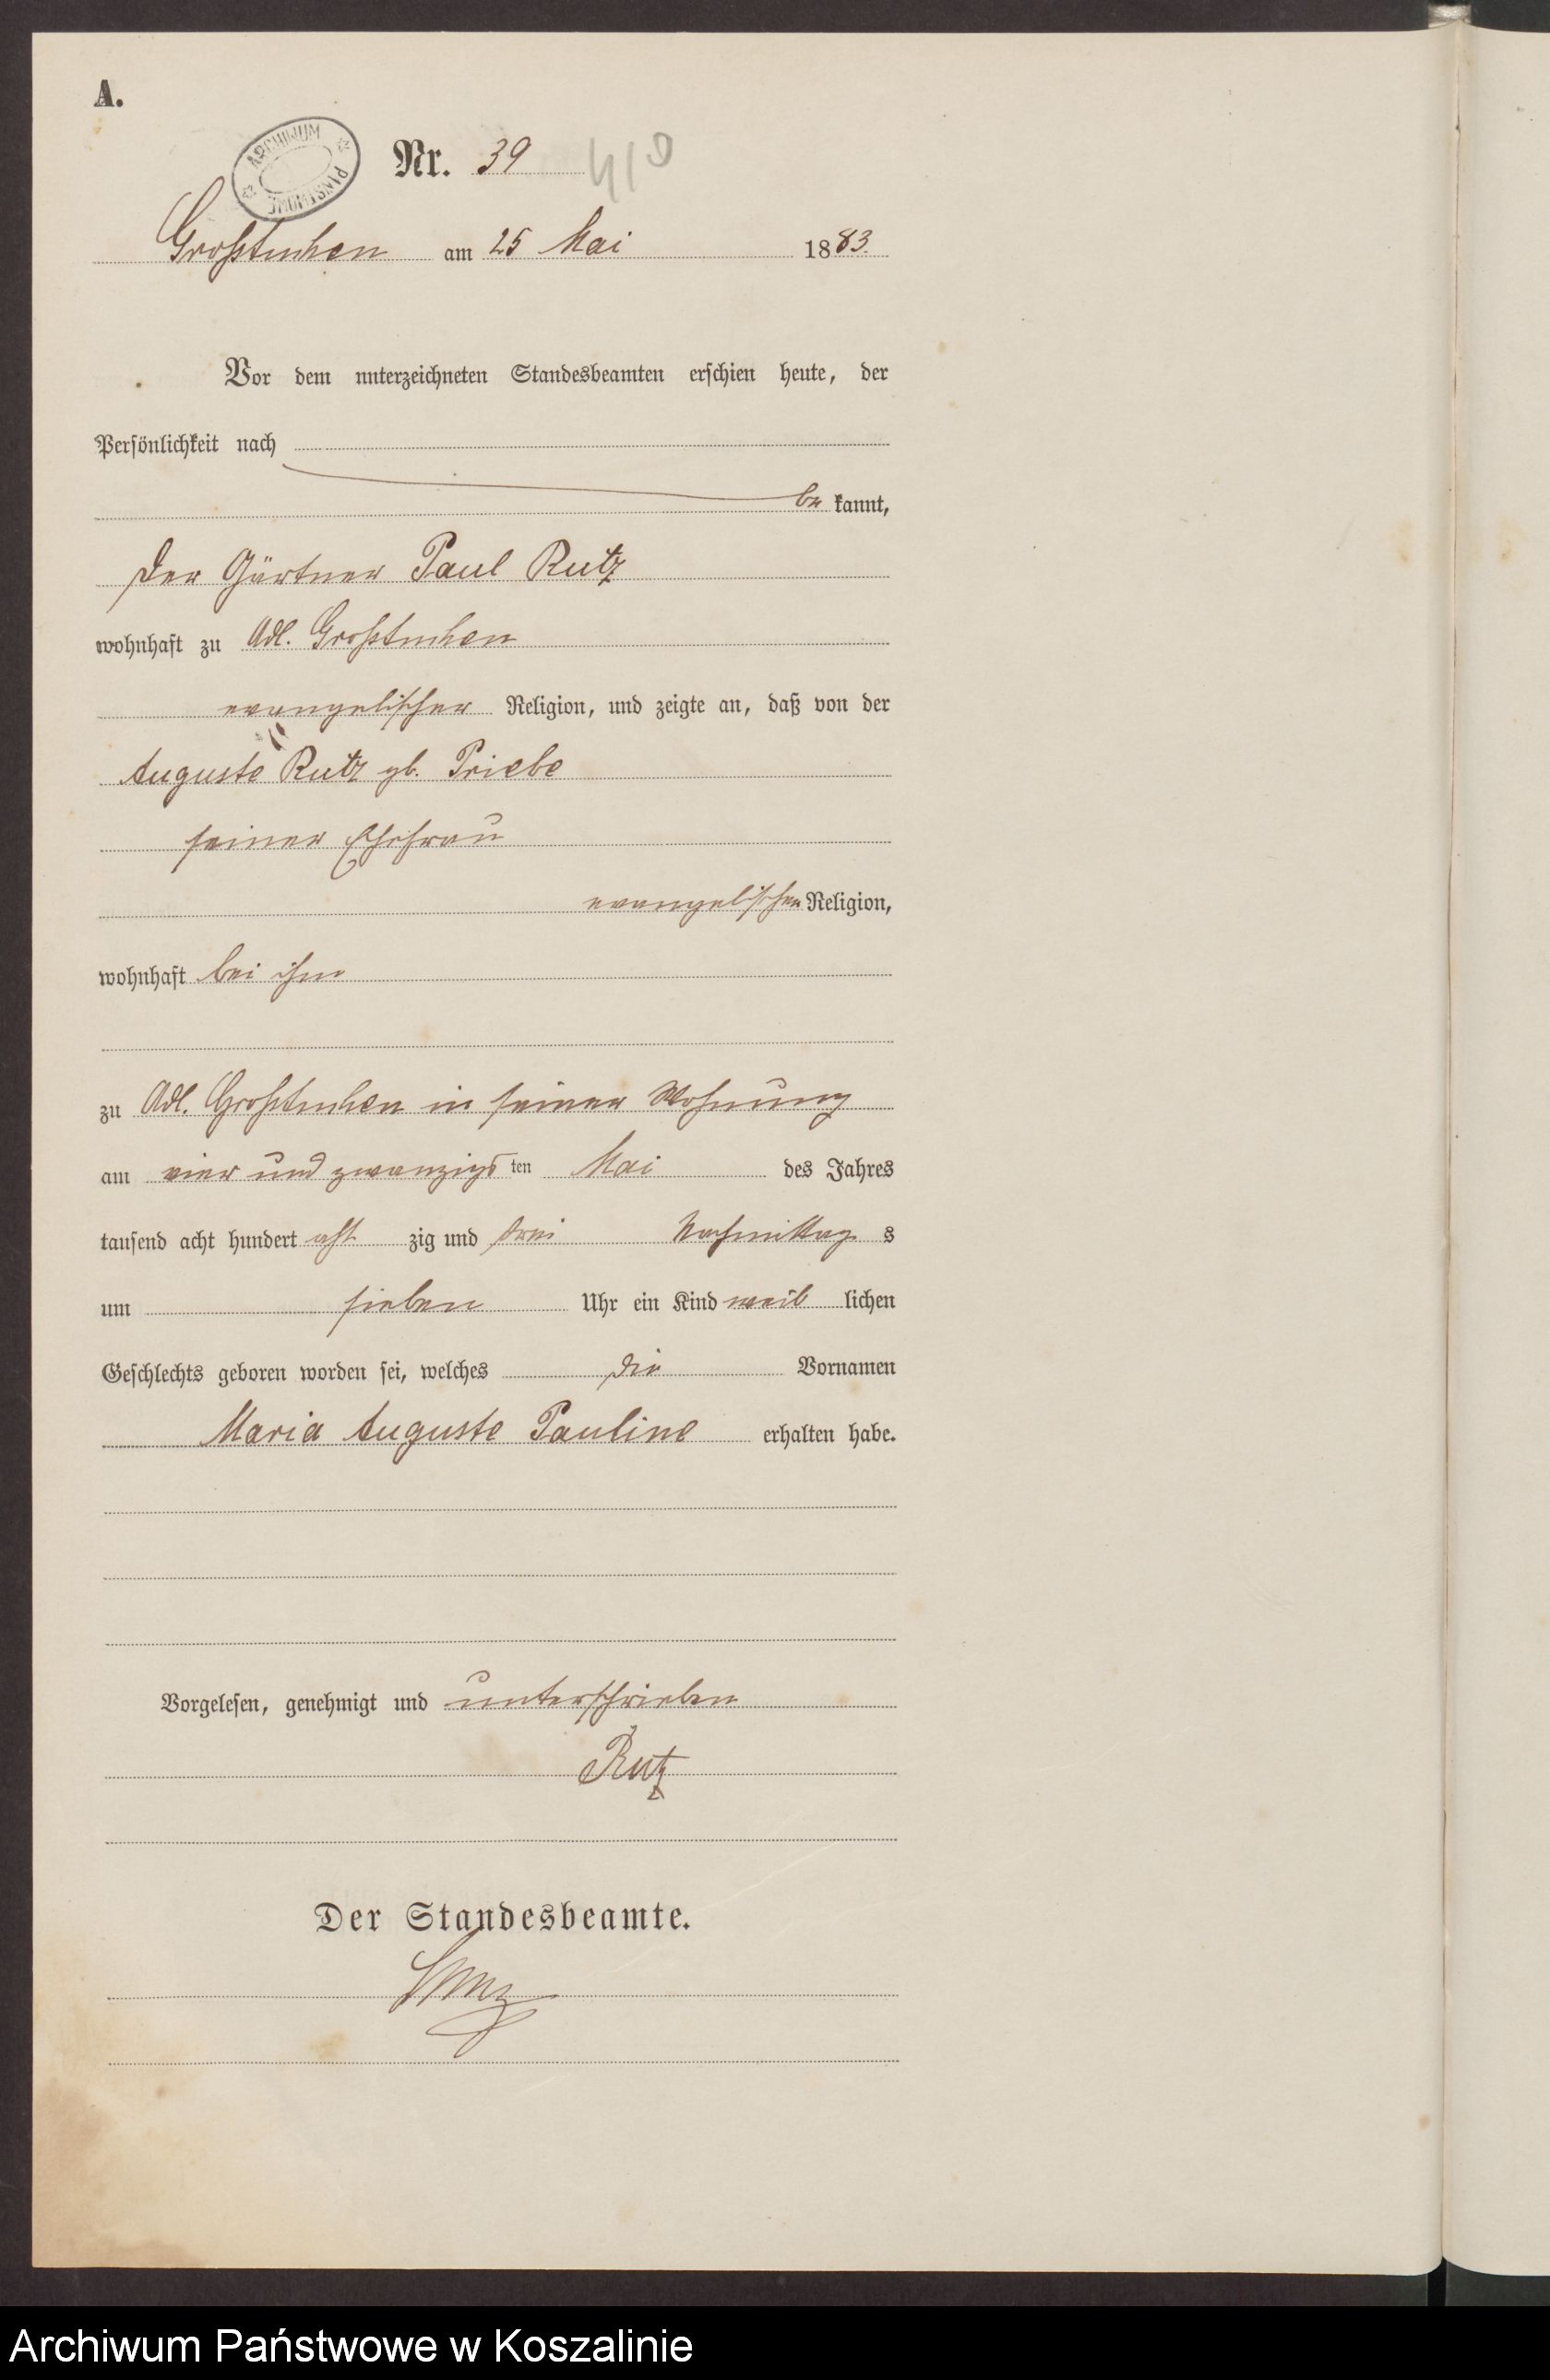 A.
ARCHIWUM PAŃSTWOWE
Nr. 39
Großtuchen am 25 Mai 1883
Vor dem unterzeichneten Standesbeamten erschien heute, der
Persönlichkeit nach
be kannt,
der Gärtner Paul Rutz
wohnhaft zu Adl. Großtuchen
evangelischer Religion, und zeigte an, daß von der
Auguste Rutz gb. Priebe
seiner Ehefrau
evangelischer Religion,
wohnhaft bei ihm
zu Adl. Großtuchen in seiner Wohnung
am vier und zwanzigs ten Mai des Jahres
tausend acht hundert acht zig und drei Nachmittag s
um sieben Uhr ein Kind weib lichen
Geschlechts geboren worden sei, welches die Vornamen
Maria Auguste Pauline erhalten habe.
Vorgelesen, genehmigt und unterschrieben
Rutz
Der Standesbeamte.
Archiwum Państwowe w Koszalinie